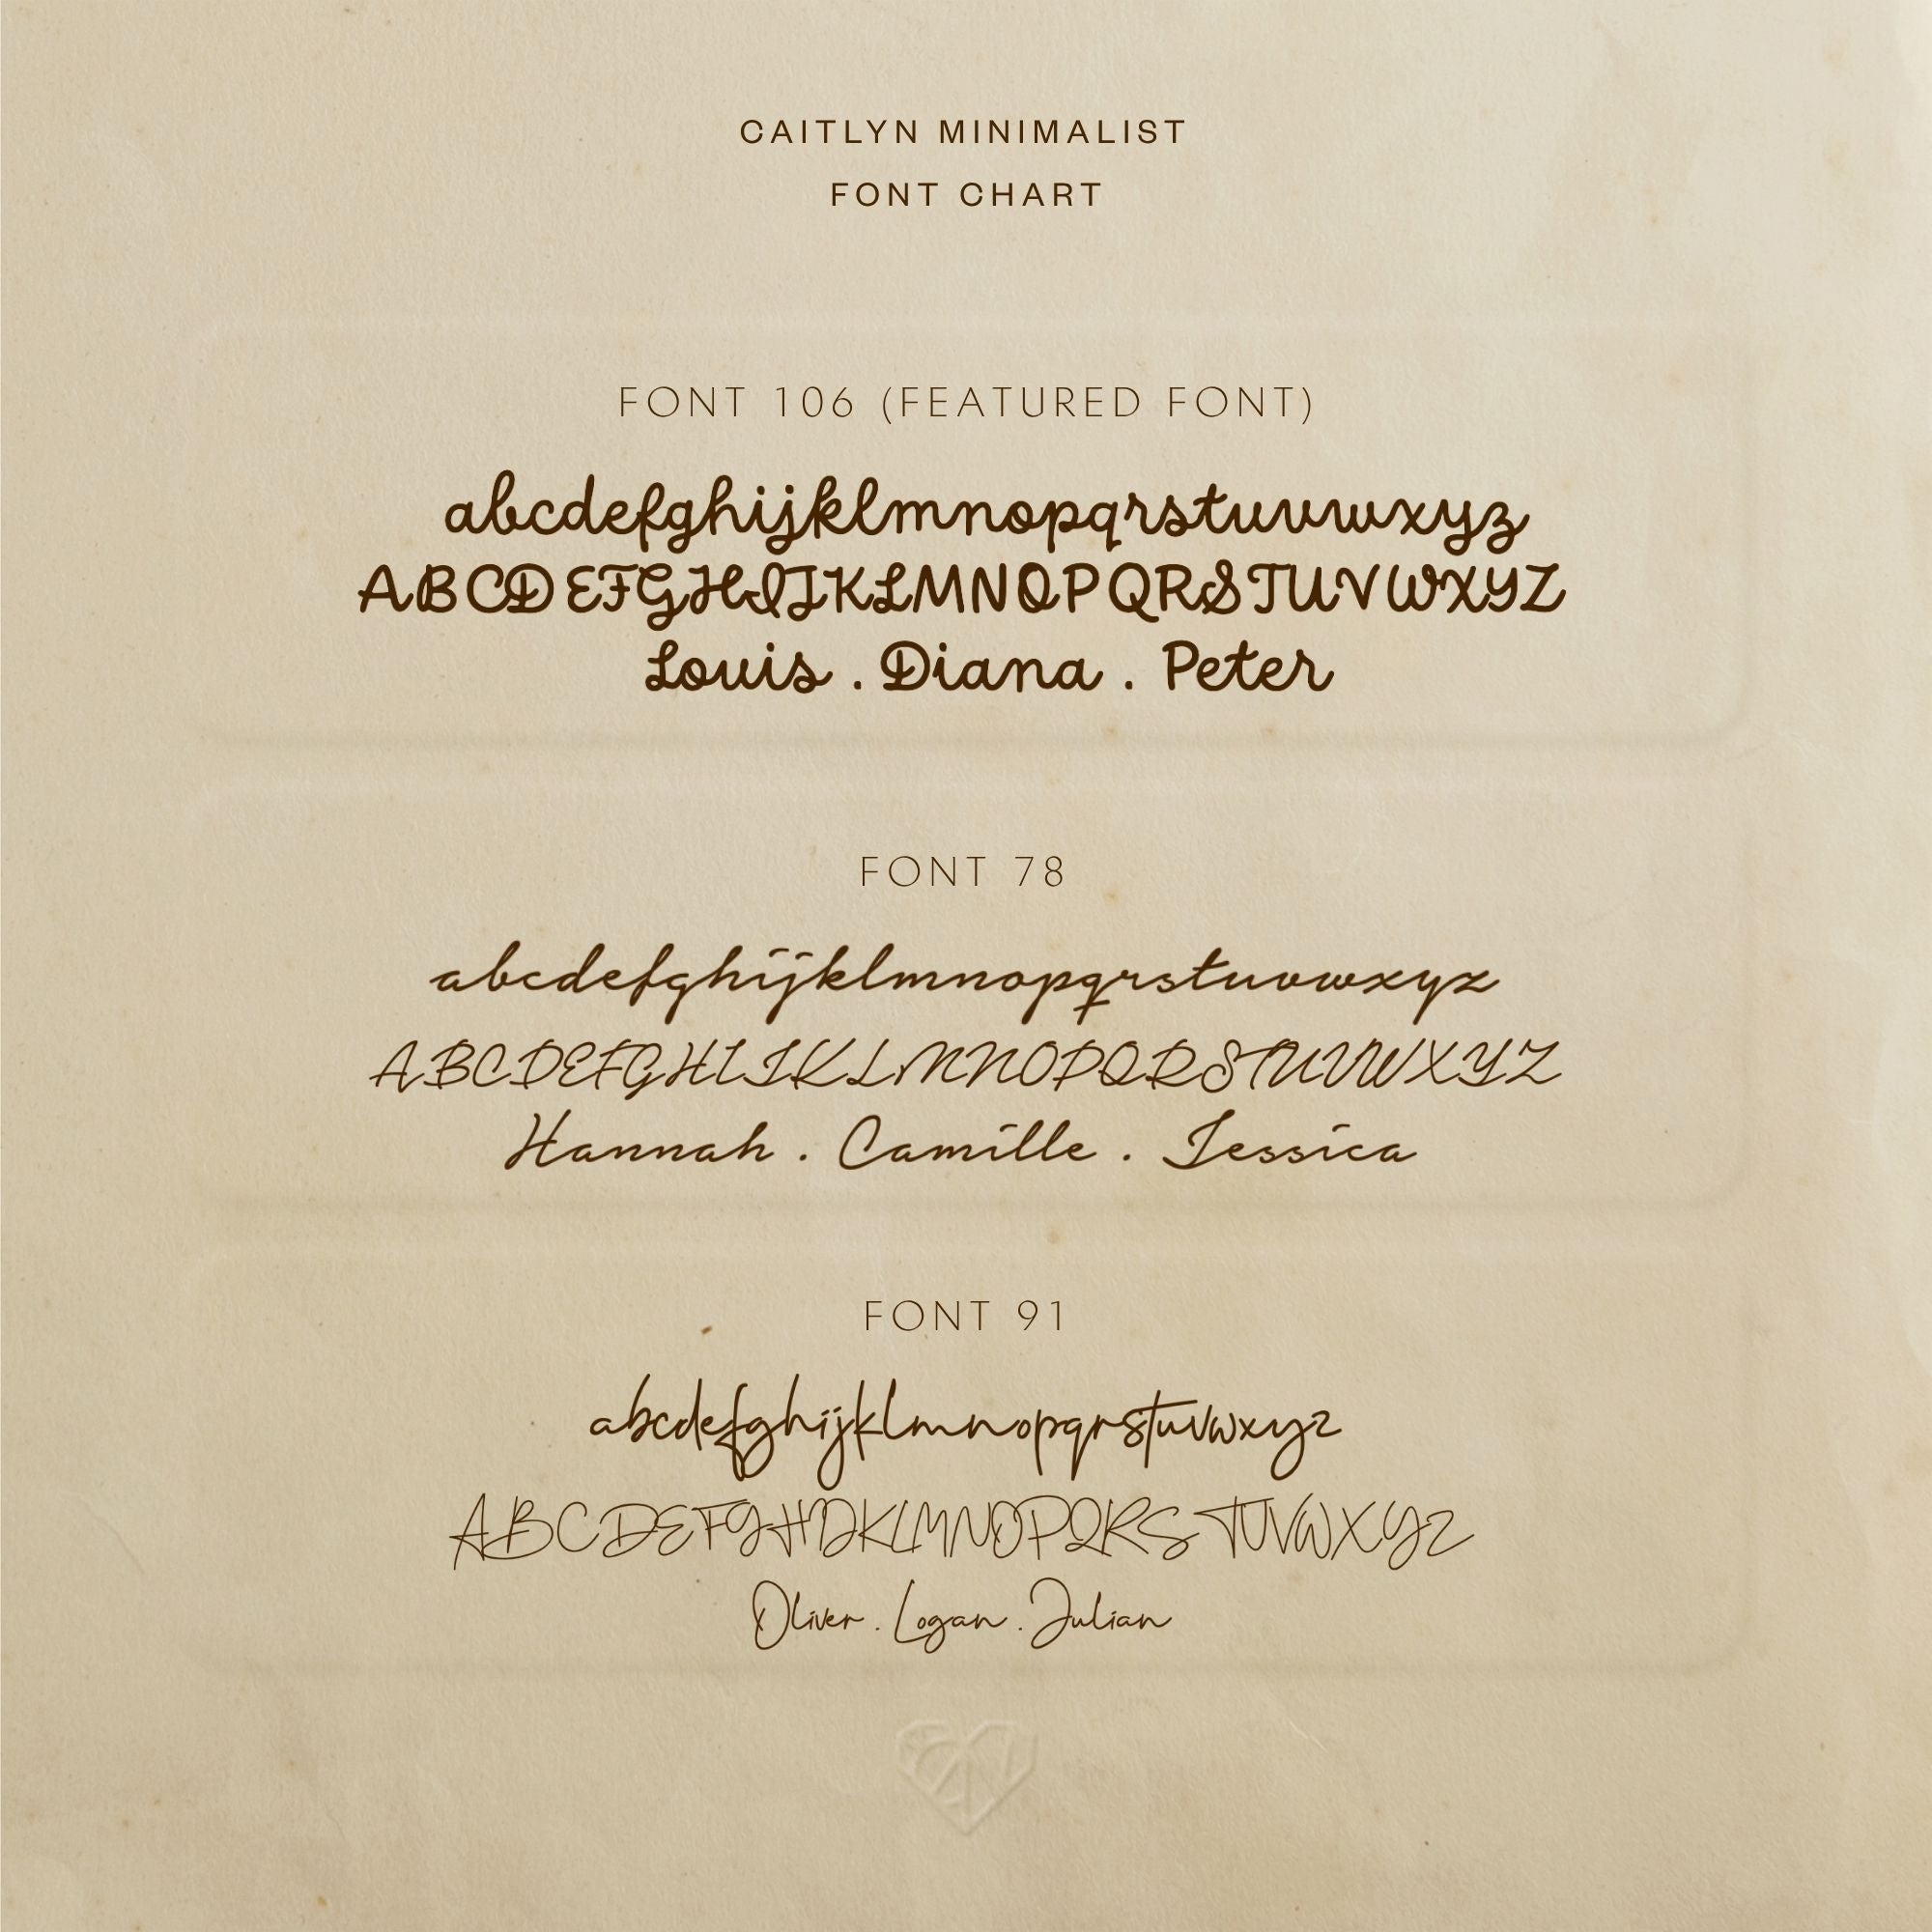 CAITLYN MINIMALIST
FONT CHART
FONT 106 (FEATURED FONT)
abcdefghijklmnopqrstuvwxyz
ABCDEFGHIJKLMNOPQRSTUVWXYZ
Louis . Diana . Peter
FONT 78
abcdefghijklmnopqrstuvwxyz
ABCDEFGHIJKLMNOPQRSTUVWXYZ
Hannah . Camille . Jessica
FONT 91
abcdefghijklmnopqrstuvwxyz
ABCDEFGHIJKLMNOPQRSTUVWXYZ
Oliver . Logan . Julian